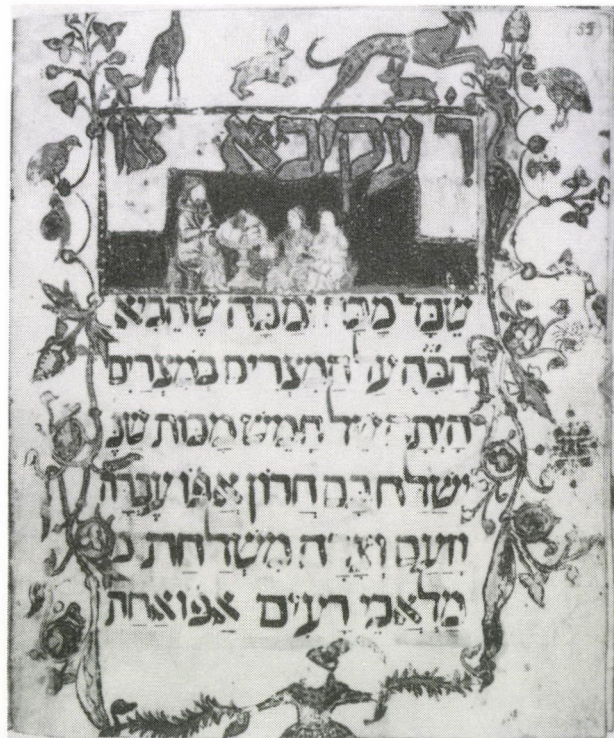 (55)
ר עקיבא או
שֶׁכָּל מַכָּה וּמַכָּה שֶׁהֵבִיא
הקבה עַל הַמִּצְרִים בְּמִצְרַיִם
הָיְתָה שֶׁל חָמֵשׁ מַכּוֹת שֶׁנֶ
יְשַׁלַּח בָּם חֲרוֹן אַפּוֹ עֶבְרָה
וָזַעַם וְצָרָה מִשְׁלַחַת מ
מַלְאֲכֵי רָעִים אַפּוֹ אַחַת